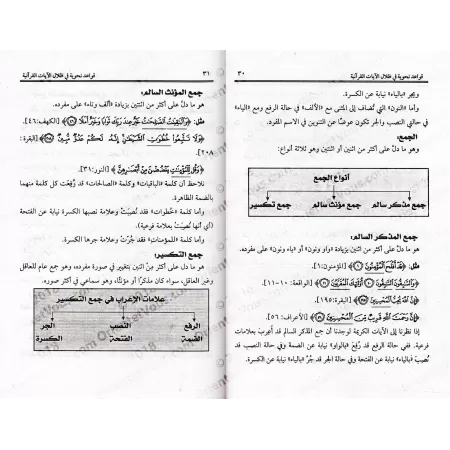 ٣٠ قواعد نحوية في ظلال الآيات القرآنية
ويجر «بالياء» نيابة عن الكسرة.
وأما «النون» التي تُضاف إلى المثنى مع «الألف» في حالة الرفع ومع «الياء»
في حالتي النصب والجر تكون عوضًا عن التنوين في الاسم المفرد.
الجمع:
وهو ما دل على أكثر من اثنين أو اثنتين وهو ثلاثة أنواع:
أنواع الجمع
جمع مذكر سالم جمع مؤنث سالم جمع تكسير
جمع المذكر السالم:
هو ما دلَّ على أكثر من اثنين بزيادة «واو ونون» أو «ياء ونون» على مفرده.
مثل: ﴿قَدْ أَفْلَحَ الْمُؤْمِنُونَ﴾ [المؤمنون: ١].
﴿وَالسَّابِقُونَ السَّابِقُونَ ۝ أُولَٰئِكَ الْمُقَرَّبُونَ﴾ [الواقعة: ١٠-١١].
﴿إِنَّ اللَّهَ يُحِبُّ الْمُحْسِنِينَ﴾ [البقرة: ١٩٥].
﴿إِنَّ رَحْمَتَ اللَّهِ قَرِيبٌ مِّنَ الْمُحْسِنِينَ﴾ [الأعراف: ٥٦].
إذا نظرنا إلى الآيات الكريمة لوجدنا أن جمع المذكر السالم قد أُعرِبَ بعلامات
فرعية. ففي حالة الرفع قد رُفِعَ «بالواو» نيابة عن الضمة وفي حالة النصب قد
نُصِبَ «بالياء» نيابة عن الفتحة وفي حالة الجر قد جُرَّ «بالياء» نيابة عن الكسرة.
قواعد نحوية في ظلال الآيات القرآنية ٣١
جمع المؤنث السالم:
هو ما دلَّ على أكثر من اثنتين بزيادة «ألف وتاء» على مفرده.
مثل: ﴿وَالْبَاقِيَاتُ الصَّالِحَاتُ خَيْرٌ عِندَ رَبِّكَ ثَوَابًا وَخَيْرٌ أَمَلًا﴾ [الكهف: ٤٦].
﴿وَلَا تَتَّبِعُوا خُطُوَاتِ الشَّيْطَانِ إِنَّهُ لَكُمْ عَدُوٌّ مُّبِينٌ﴾ [البقرة:
٢٠٨].
﴿وَقُل لِّلْمُؤْمِنَاتِ يَغْضُضْنَ مِنْ أَبْصَارِهِنَّ﴾ [النور: ٣١].
نلاحظ أن كلمة «الباقيات» وكلمة «الصالحات» قد رُفِعَت كل كلمة منهما
بالضمة الظاهرة.
وأما كلمة «خطوات» فقد نُصِبَتْ وعلامة نصبها الكسرة نيابة عن الفتحة
(أي أنها نُصِبَتْ بعلامة فرعية).
وأما كلمة «للمؤمنات» فقد جُرَّتْ وعلامة جرها الكسرة.
جمع التكسير:
هو ما دلَّ على أكثر من اثنين بتغيير في صورة مفرده، وهو جمع عام للعاقل
وغير العاقل، سواء كان مذكرًا أو مؤنثًا، وهو سماعي في أكثر صوره.
علامات الإعراب في جمع التكسير
الرفع النصب الجر
الضمة الفتحة الكسرة